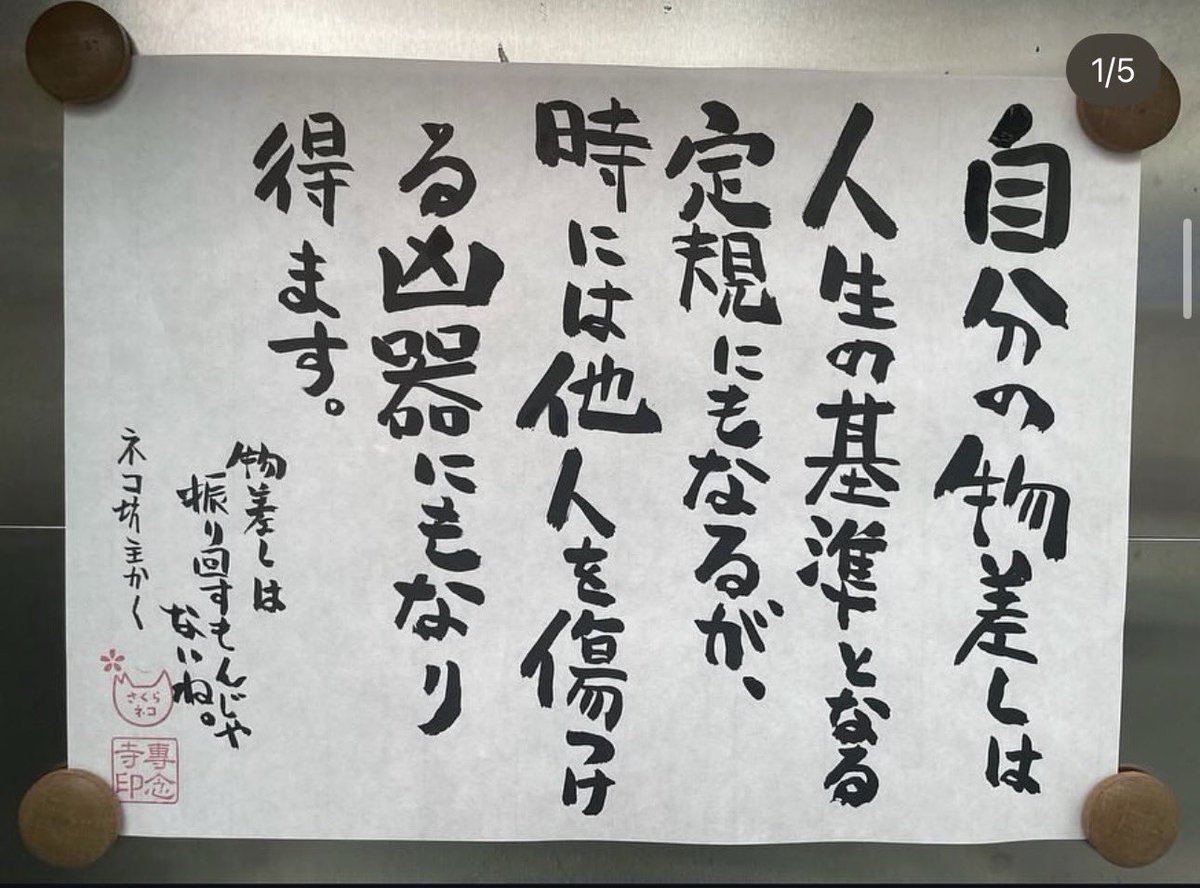 自分の物差しは
人生の基準となる
定規にもなるが、
時には他人を傷つけ
る凶器にもなり
得ます。
物差しは
振り回すもんじゃ
ないね。
ネコ坊主かく
さくら
ネコ
專念
寺印
1/5